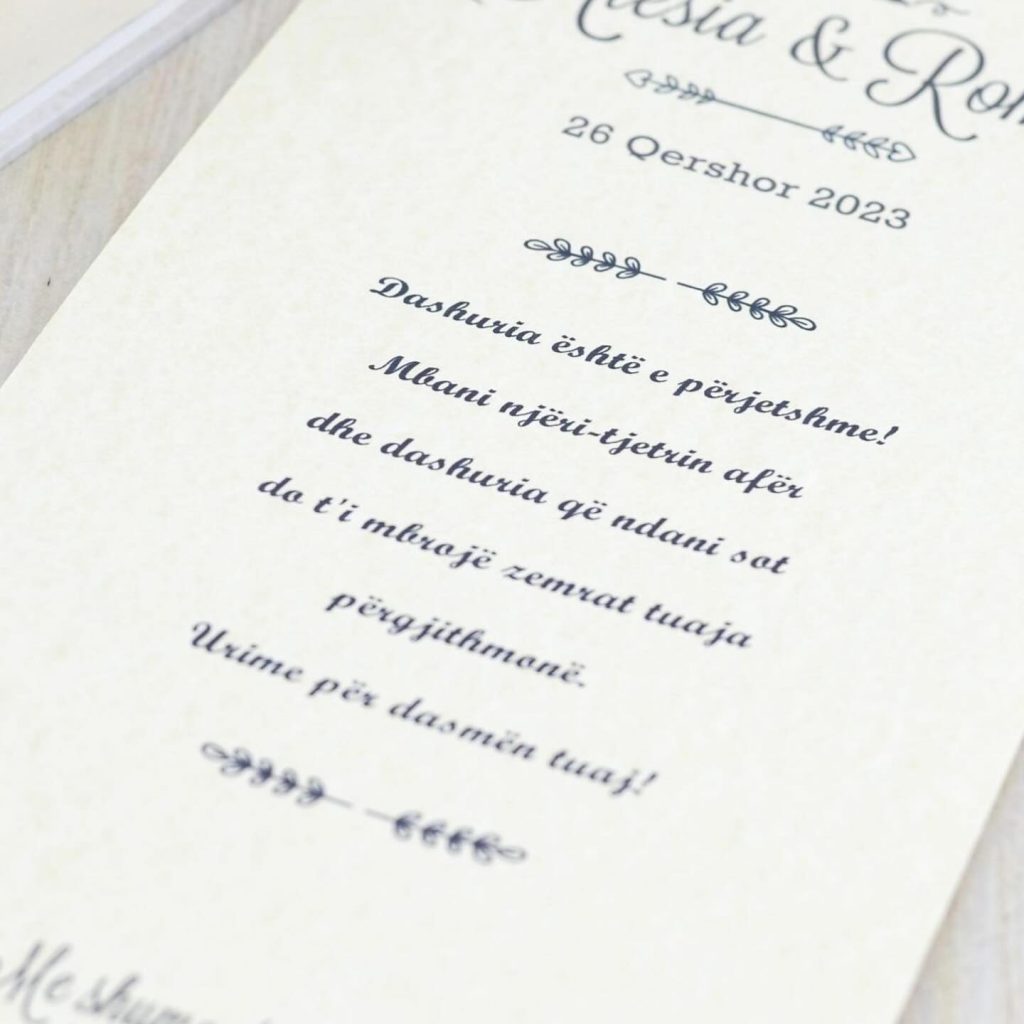 &
26 Qershor 2023
Dashuria është e përjetshme!
Mbani njëri-tjetrin afër
dhe dashuria që ndani sot
do t'i mbrojë zemrat tuaja
përgjithmonë.
Urime për dasmën tuaj!
Me